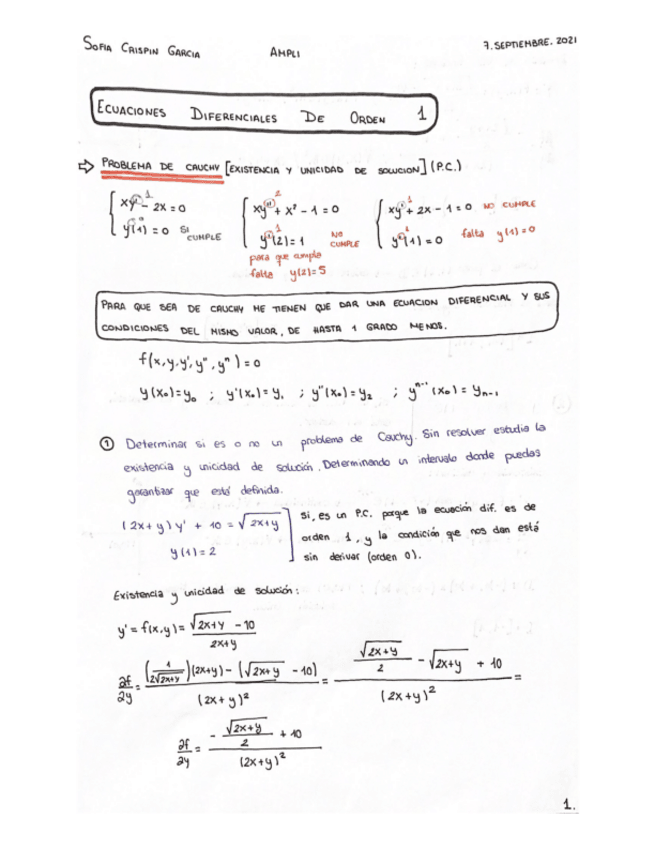 SOFIA CRISPIN GARCIA AMPLI 7. SEPTIEMBRE. 2021
ECUACIONES DIFERENCIALES DE ORDEN 1
⇒ PROBLEMA DE CAUCHY [EXISTENCIA Y UNICIDAD DE SOLUCION] (P.C.)
1
xy' - 2x = 0
0
y(1) = 0 SI CUMPLE
2
xy'' + x² - 1 = 0
1
y'(2) = 1 NO CUMPLE
para que cumpla
falta y(2)=5
1
xy' + 2x - 1 = 0 NO CUMPLE
1
y'(1) = 0 falta y(1)=0
PARA QUE SEA DE CAUCHY ME TIENEN QUE DAR UNA ECUACION DIFERENCIAL Y SUS
CONDICIONES DEL MISMO VALOR, DE HASTA 1 GRADO MENOS.
f(x,y,y',y'',yⁿ) = 0
y(x₀)=y₀ ; y'(x₀)=y₁ ; y''(x₀)=y₂ ; yⁿ⁻¹(x₀) = yₙ₋₁
① Determinar si es o no un problema de Cauchy. Sin resolver estudia la
existencia y unicidad de solución. Determinando un intervalo donde puedas
garantizar que está definida.
(2x+y)y' + 10 = √2x+y
y(1) = 2
Si, es un P.C. porque la ecuación dif. es de
orden 1, y la condición que nos dan está
sin derivar (orden 0).
Existencia y unicidad de solución:
y' = f(x,y) = (√2x+y - 10)/(2x+y)
∂f/∂y = ((1/(2√2x+y))(2x+y) - (√2x+y - 10))/(2x+y)² = (√2x+y/2 - √2x+y + 10)/(2x+y)² =
∂f/∂y = (-√2x+y/2 + 10)/(2x+y)²
1.